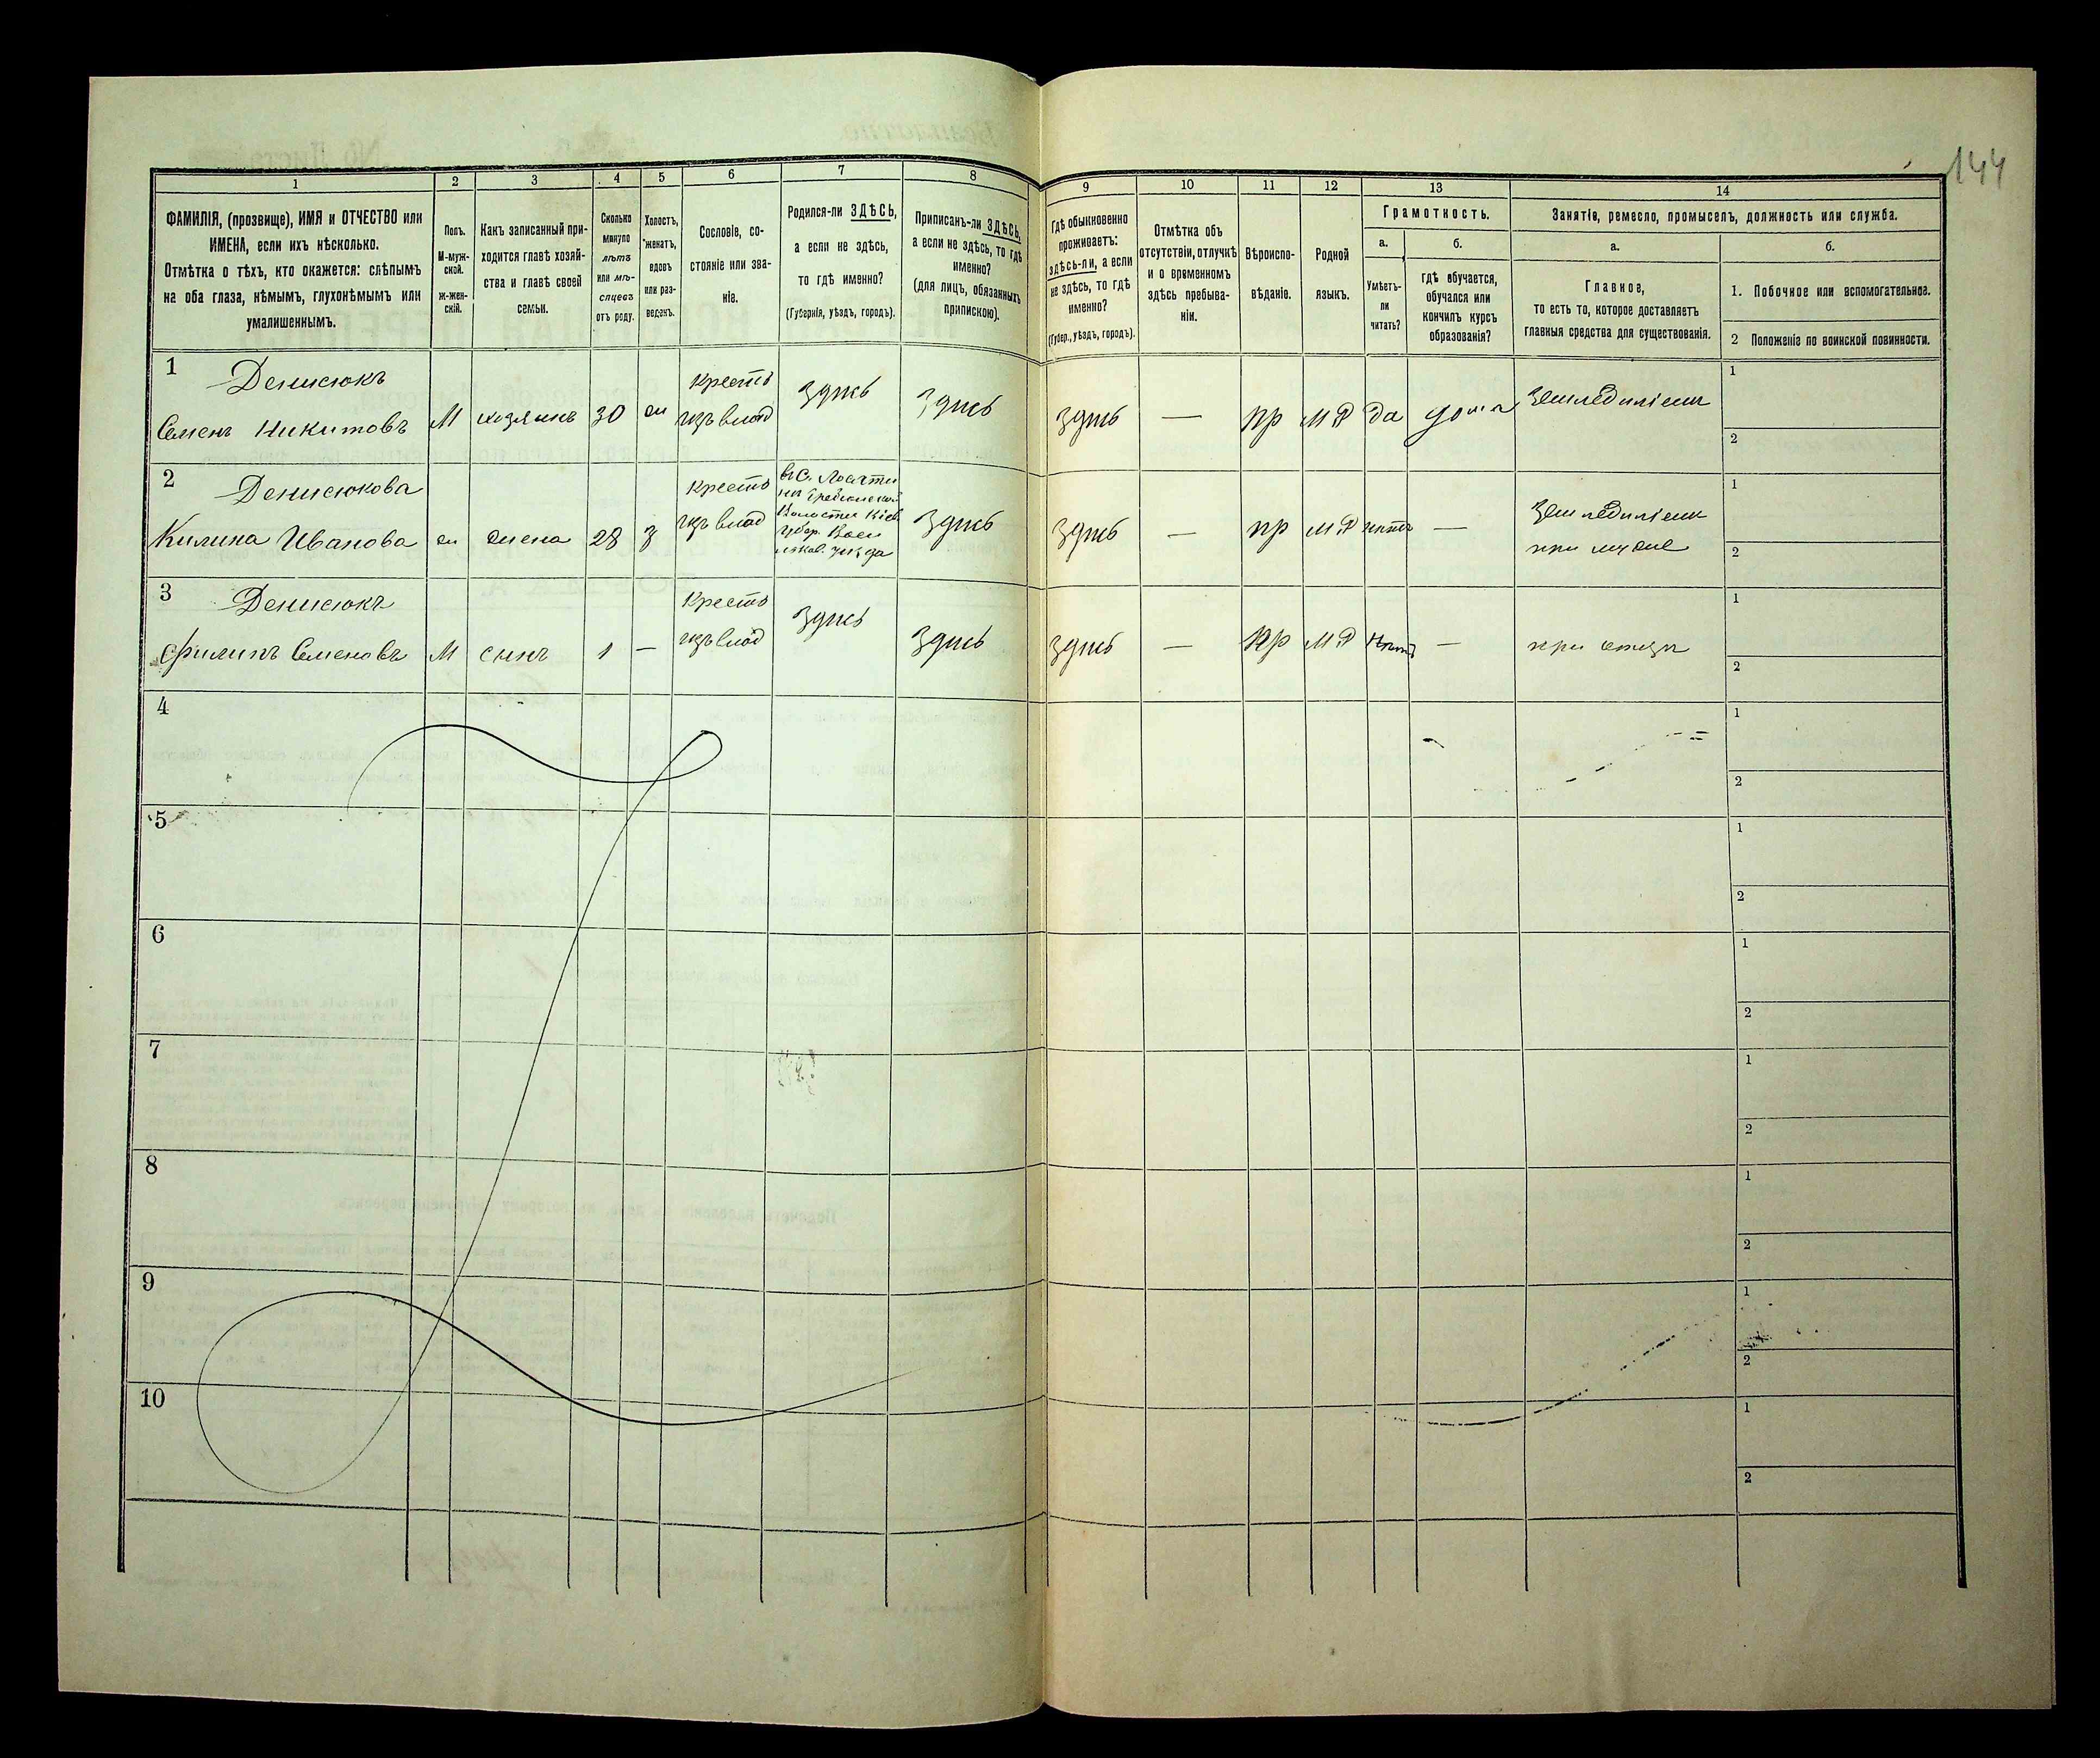 144
1
2
3
4
5
6
7
8
9
10
11
12
13
14
ФАМИЛІЯ, (прозвище), ИМЯ и ОТЧЕСТВО или
ИМЕНА, если ихъ нѣсколько.
Отмѣтка о тѣхъ, кто окажется: слѣпымъ
на оба глаза, нѣмымъ, глухонѣмымъ или
умалишеннымъ.
Полъ.
М-муж-
ской.
ж-жен-
скій.
Какъ записанный при-
ходится главѣ хозяй-
ства и главѣ своей
семьи.
Сколько
минуло
лѣтъ
или мѣ-
сяцевъ
отъ роду.
Холостъ,
женатъ,
вдовъ
или раз-
веденъ.
Сословіе, со-
стояніе или зва-
ніе.
Родился-ли ЗДѢСЬ,
а если не здѣсь,
то гдѣ именно?
(Губернія, уѣздъ, городъ).
Приписанъ-ли ЗДѢСЬ,
а если не здѣсь, то гдѣ
именно?
(для лицъ, обязанныхъ
припискою).
Гдѣ обыкновенно
проживаетъ:
здѣсь-ли, а если
не здѣсь, то гдѣ
именно?
(Губер., уѣздъ, городъ).
Отмѣтка объ
отсутствіи, отлучкѣ
и о временномъ
здѣсь пребыва-
ніи.
Вѣроиспо-
вѣданіе.
Родной
языкъ.
Грамотность.
а.
Умѣетъ-
ли
читать?
б.
гдѣ обучается,
обучался или
кончилъ курсъ
образованія?
Занятіе, ремесло, промыселъ, должность или служба.
а.
Главное,
то есть то, которое доставляетъ
главныя средства для существованія.
б.
1. Побочное или вспомогательное.
2 Положеніе по воинской повинности.
1
Денисюкъ
Семенъ Никитовъ
М
хозяинъ
30
ж
Крестъ
изъ влад
Здѣсь
Здѣсь
здѣсь
—
пр
МР
да
дома
Земледѣліемъ
1
2
2
Денисюкова
Килина Иванова
ж
жена
28
з
Крестъ
изъ влад
въ С.
Волости Кіев
Губер. Васи
льков. уѣзда
Здѣсь
Здѣсь
—
пр
МР
нѣтъ
—
Земледѣліем
при мужѣ
1
2
3
Денисюкъ
Филипъ Семеновъ
М
сынъ
1
—
Крестъ
изъ влад
Здѣсь
Здѣсь
Здѣсь
—
Пр
МР
Нѣтъ
—
при отцѣ
1
2
4
1
2
5
1
2
6
1
2
7
1
2
8
1
2
9
1
2
10
1
2